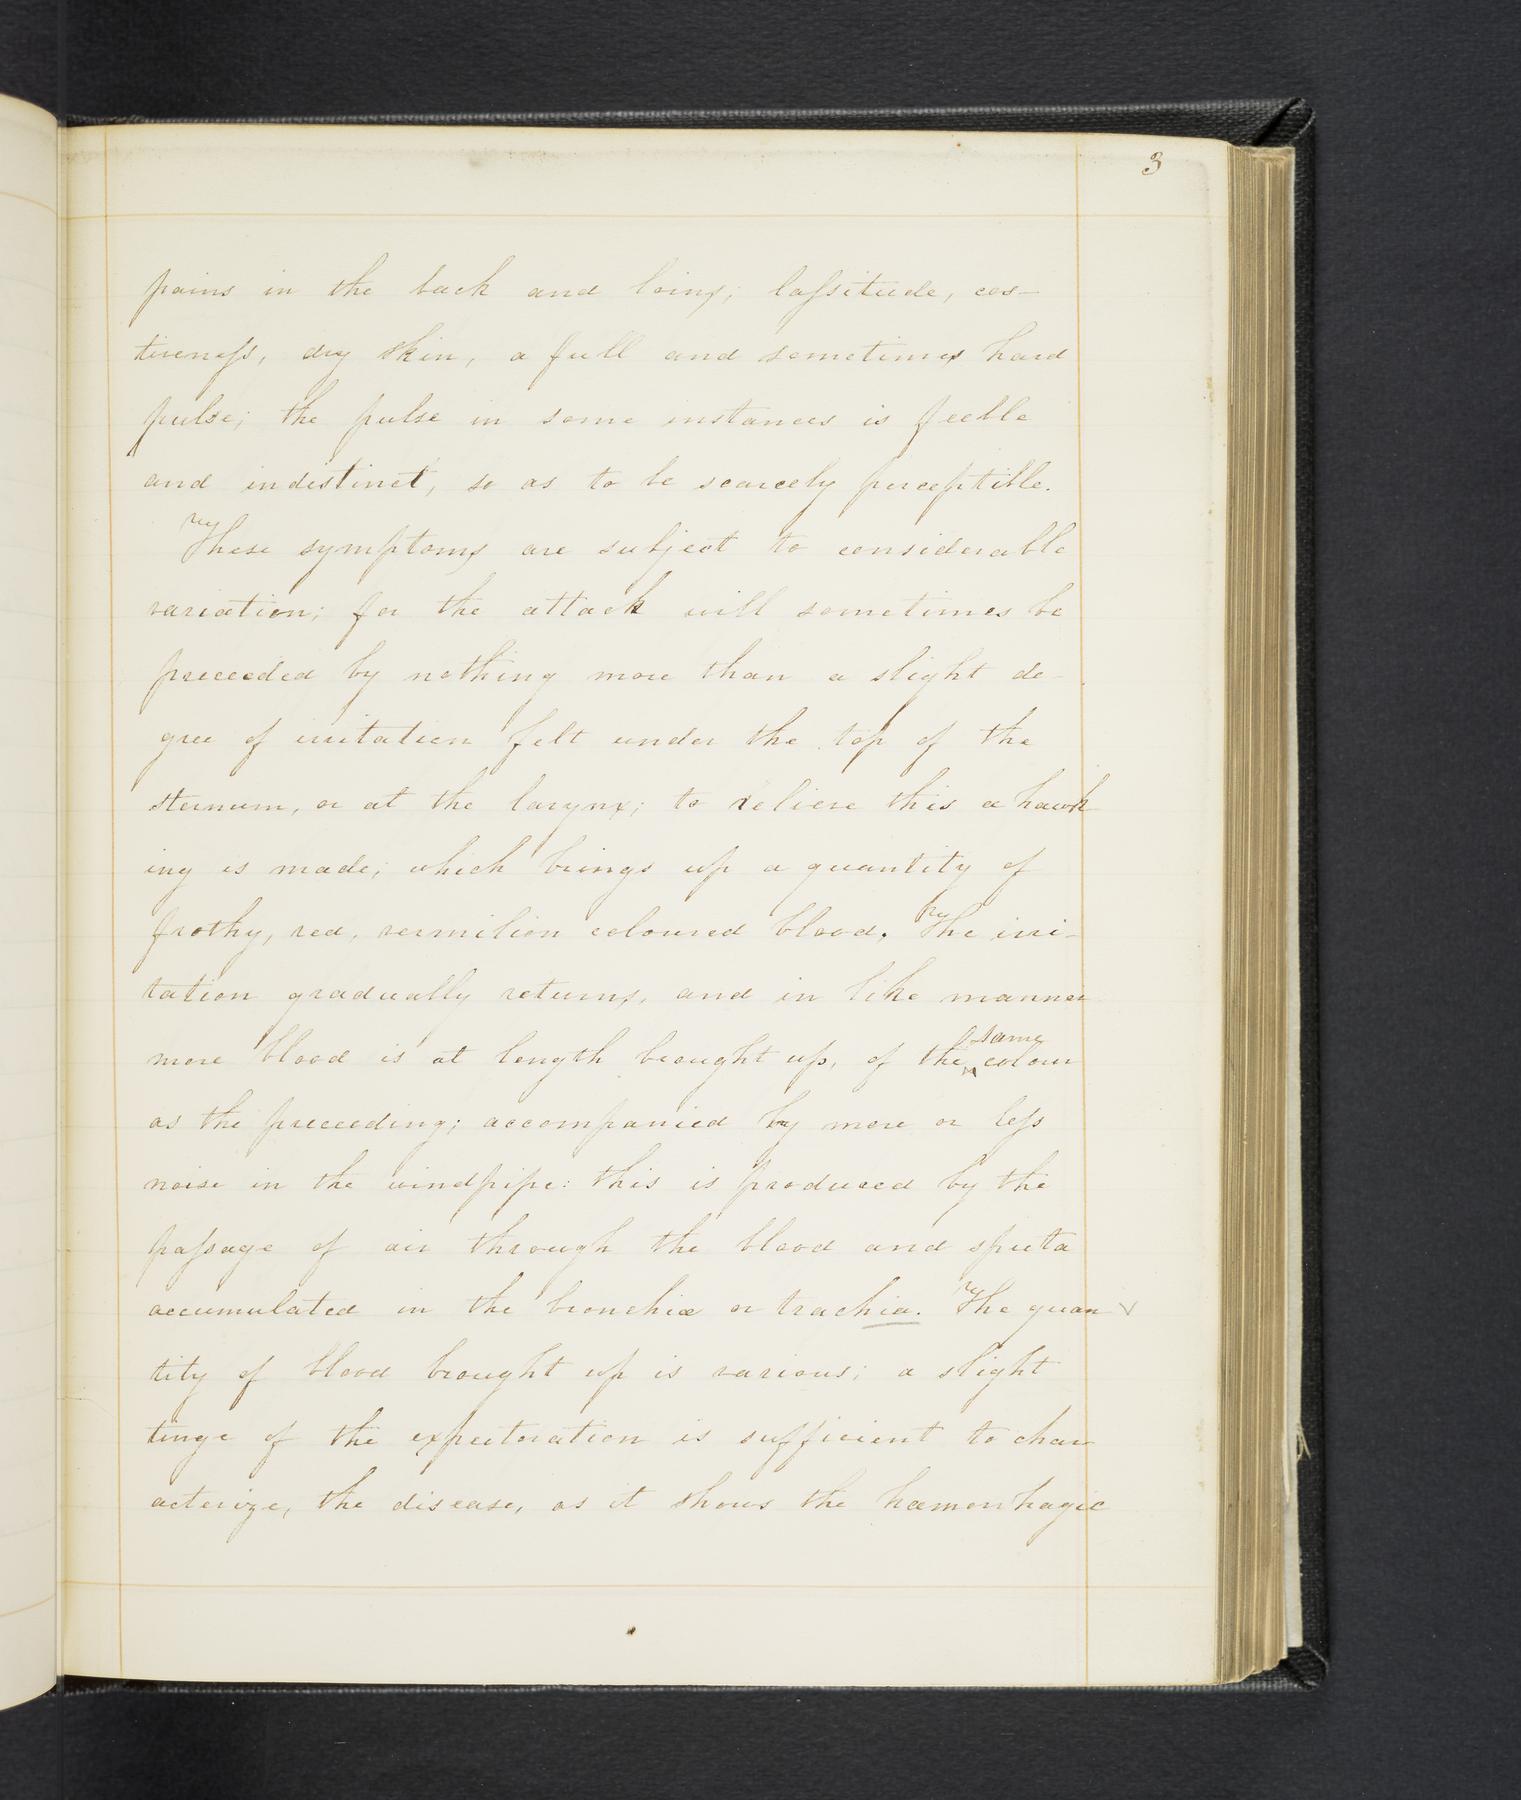 3
pains in the back and loins; laſsitude, cos-
tiveneſs, dry skin, a full and sometimes hard
pulse; the pulse in some instances is feeble
and indistinct, so as to be scarcely perceptible.
These symptoms are subject to considerable
variation; for the attack will sometimes be
preceeded by nothing more than a slight de-
gree of irritation felt under the top of the
sternum, or at the larynx; to relieve this a hawk
ing is made; which brings up a quantity of
frothy, red, vermilion coloured blood. The irri-
tation gradually returns, and in like manner
same
more blood is at length brought up, of the ‸ colour
as the preceeding; accompanied by more or leſs
noise in the windpipe: this is produced by the
paſsage of air through the blood and sputa
accumulated in the bronchiæ or trachia. The quan
tity of blood brought up is various; a slight
tinge of the expectoration is sufficient to char
acterize, the disease, as it shows the hæmorrhagic